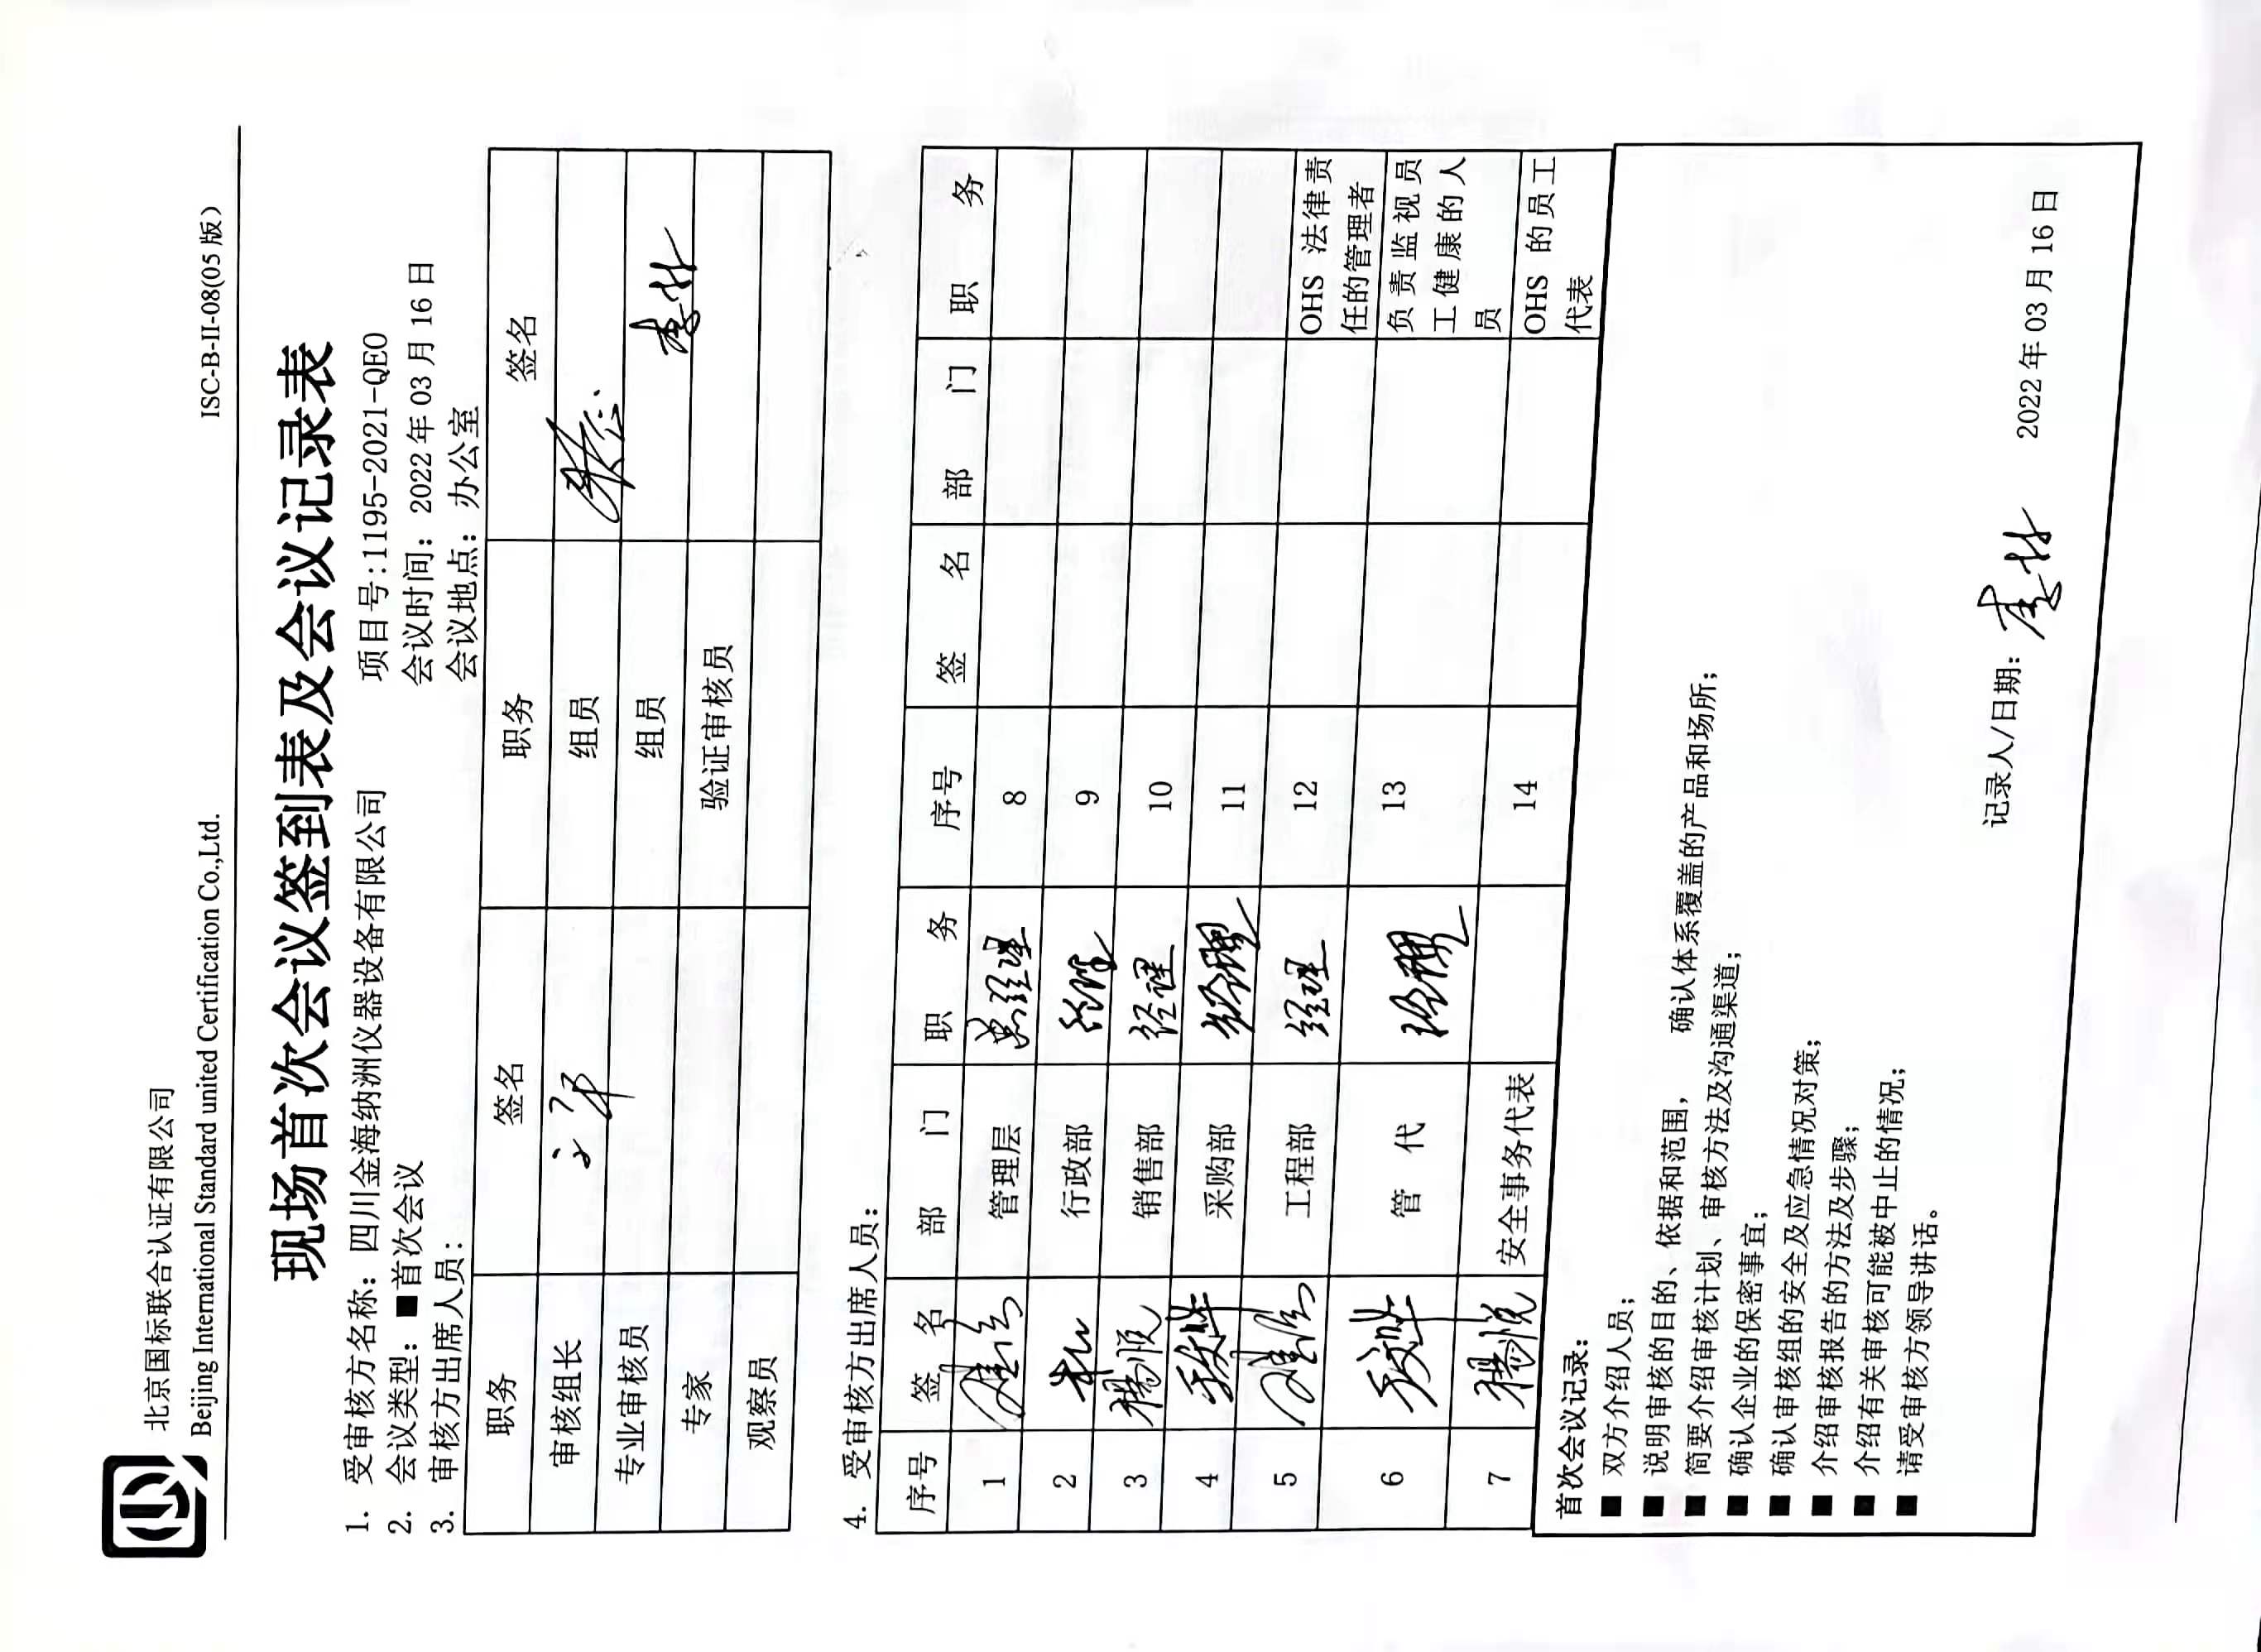 北京国标联合认证有限公司
Beijing International Standard united Certification Co.,Ltd.
ISC-B-II-08(05版)
现场首次会议签到表及会议记录表
1. 受审核方名称：四川金海纳洲仪器设备有限公司 项目号:1195-2021-QEO
2. 会议类型：■首次会议 会议时间：2022年03月16日
3. 审核方出席人员： 会议地点：办公室
职务 签名 职务 签名
审核组长 组员
专业审核员 组员
专家 验证审核员
观察员
4. 受审核方出席人员：
序号 签 名 部 门 职 务 序号 签 名 部 门 职 务
1 管理层 总经理 8
2 行政部 经理 9
3 杨悦 销售部 经理 10
4 采购部 经理 11
5 工程部 经理 12 OHS 法律责
任的管理者
6 管 代 经理 13 负责监视员
工健康的人
员
7 杨悦 安全事务代表 14 OHS 的员工
代表
首次会议记录：
■ 双方介绍人员；
■ 说明审核的目的、依据和范围， 确认体系覆盖的产品和场所；
■ 简要介绍审核计划、审核方法及沟通渠道；
■ 确认企业的保密事宜；
■ 确认审核组的安全及应急情况对策；
■ 介绍审核报告的方法及步骤；
■ 介绍有关审核可能被中止的情况；
■ 请受审核方领导讲话。
记录人/日期： 2022年03月16日